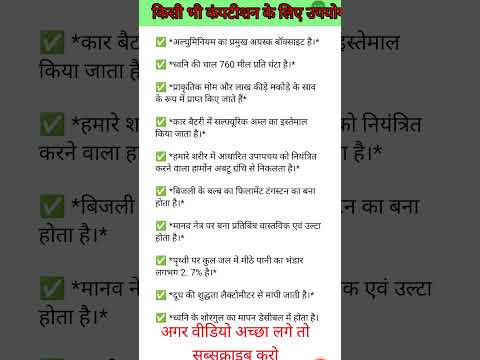 किसी भी कंपटीशन के लिए उपयो
✅ *अल्युमिनियम का प्रमुख अयस्क बॉक्साइट है।*
✅ *ध्वनि की चाल 760 मील प्रति घंटा है।*
✅ *प्राकृतिक मोम और लाख कीड़े मकोड़े के स्राव
के रूप में प्राप्त किए जाते हैं*
✅ *कार बैटरी में सल्फ्यूरिक अम्ल का इस्तेमाल
किया जाता है।*
✅ *हमारे शरीर में आधारित उपापचय को नियंत्रित
करने वाला हार्मोन अबटू ग्रंथि से निकलता है।*
✅ *बिजली के बल्ब का फिलामेंट टंगस्टन का बना
होता है।*
✅ *मानव नेत्र पर बना प्रतिबिंब वास्तविक एवं उल्टा
होता है।*
✅ *पृथ्वी पर कुल जल में मीठे पानी का भंडार
लगभग 2. 7% है।*
✅ *दूध की शुद्धता लैक्टोमीटर से मापी जाती है।*
✅ *ध्वनि के शोरगुल का मापन डेसीबल में होता है।
अगर वीडियो अच्छा लगे तो
सब्सक्राइब करो
✅ *कार बै
स्तेमाल
किया जाता है
✅ *हमारे श
नियंत्रित
करने वाला ह
है।*
✅ *बिजली
का बना
होता है।*
✅ *मानव ने
एवं उल्टा
होता है।*